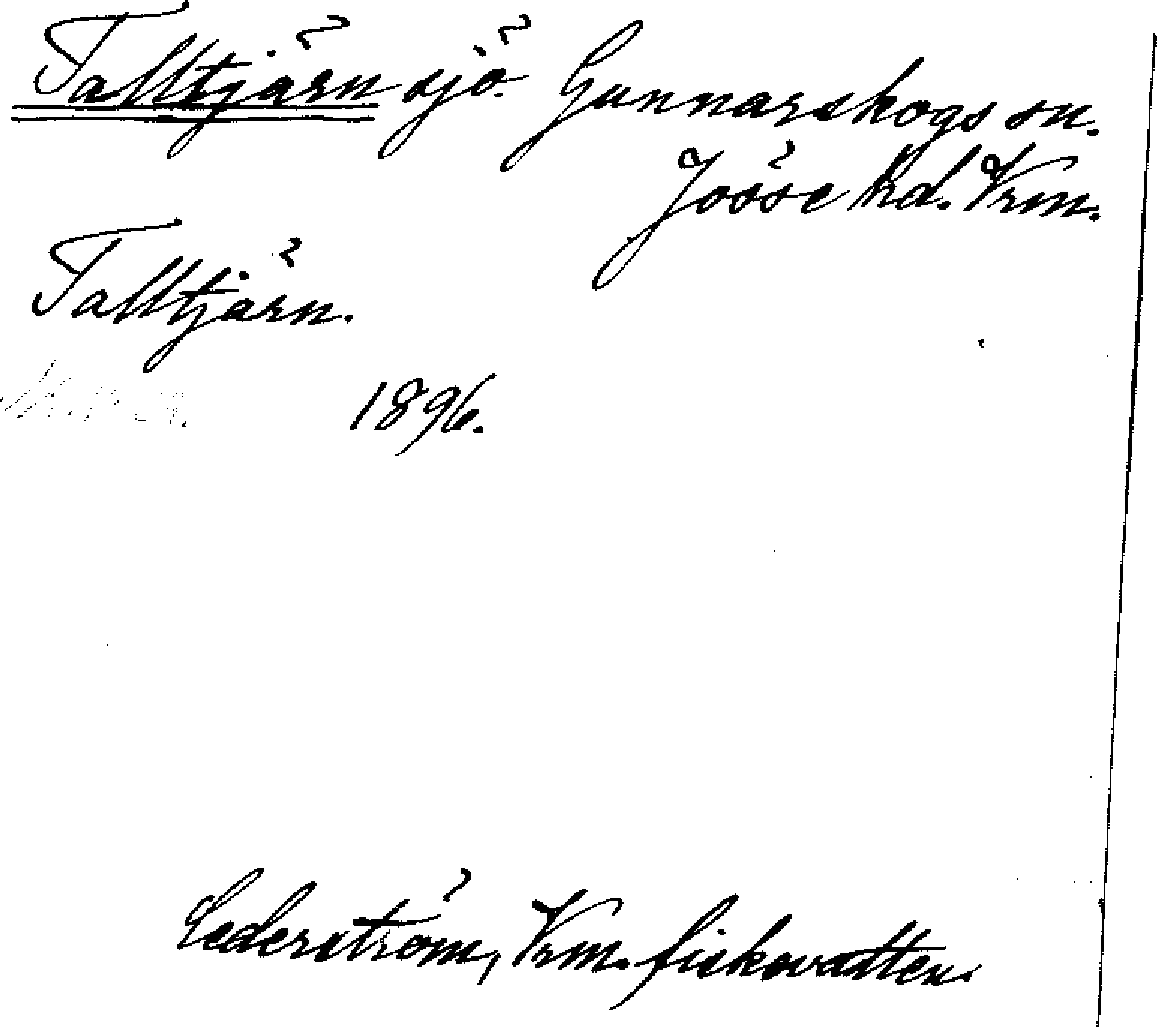 Talltjärn sjö. Gunnarskogs sn.
Jösse hd. Vrm.
Talltjärn.
1896.
Cederström, Vrm. fiskevatten.